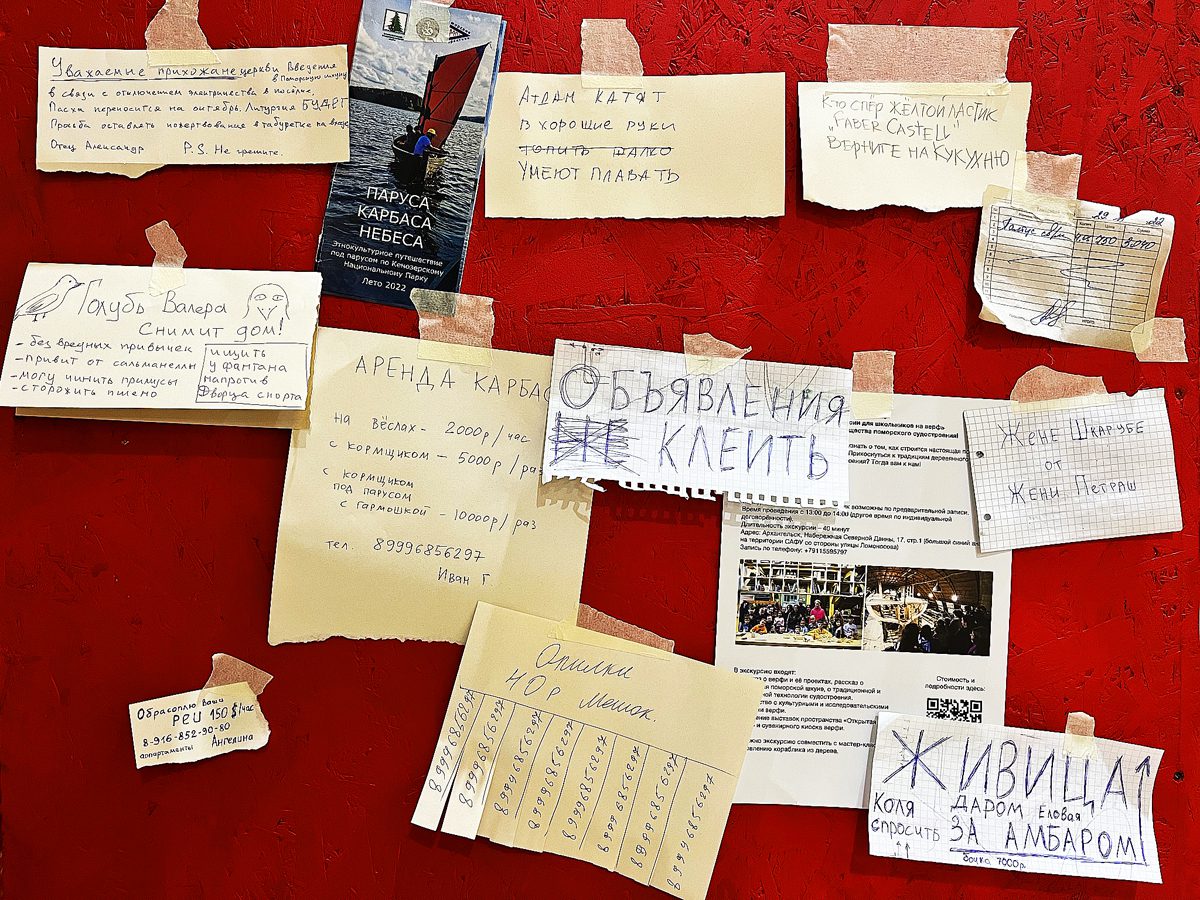 Уважаемые прихожане церкви Введения
в Поморскую шхуну
в связи с отключением электричества в посёлке,
Пасха переносится на октябрь. Литургия БУДЕТ
Просьба оставлять пожертвование в табуретке на входе
Отец Александр P.S. Не грешите.
ПАРУСА
КАРБАСА
НЕБЕСА
Этнокультурное путешествие
под парусом по Кенозерскому
Национальному Парку
Лето 2022
АтДАМ КАТЯТ
В ХОРОШИЕ РУКИ
ТОПИТЬ ЖАЛКО
УМЕЮТ ПЛАВАТЬ
Кто спёр жёлтой ластик
„FABER CASTELL"
ВЕРНИТЕ НА КУКУХНЮ
Голубь Валера
Снимит дом!
- без вредных привычек
- привит от сальманеллы
- могу чинить примусы
- сторожить пшено
ищить
у фантана
напротив
Дворца спорта
АРЕНДА КАРБАС
на вёслах - 2000р / час
с кормщиком - 5000р / раз
с кормщиком
под парусом
с гармошкой - 10000р / раз
тел. 89996856297
Иван Г
ОБЪЯВЛЕНИЯ
НЕ КЛЕИТЬ
ЖЕНЕ ШКАРУБЕ
от
ЖЕНИ ПЕТРАШ
сии для школьников на верфь
щества поморского судостроения!
знать о том, как строится настоящая
Прикоснуться к традициям деревянного
ния? Тогда вам к нам!
возможны по предварительной записи.
Время проведения с 13:00 до 14:00 (другое время по индивидуальной
договорённости).
Длительность экскурсии – 40 минут
Адрес: Архангельск, Набережная Северной Двины, 17, стр.1 (большой синий
на территории САФУ со стороны улицы Ломоносова)
Запись по телефону: +79115595797
В экскурсию входят:
о верфи и её проектах, рассказ о
поморской шхуне, о традиционной и
ной технологии судостроения.
ство с культурными и исследовательскими
ми верфи.
ние выставок пространства «Открытая
и сувенирного киоска верфи.
жно экскурсию совместить с мастер-кла
овлению кораблика из дерева.
Стоимость и
подробности здесь:
Опилки
40 р мешок.
89996856297
89996856297
89996856297
89996856297
89996856297
89996856297
89996856297
89996856297
Обрасоплю Ваши
РЕЦ 150 $/час
8-916-852-90-80
аппартаменты Ангелина
ЖИВИЦА
КОЛЯ ДАРОМ Еловая
спросить ЗА АМБАРОМ
бочка 7000р.